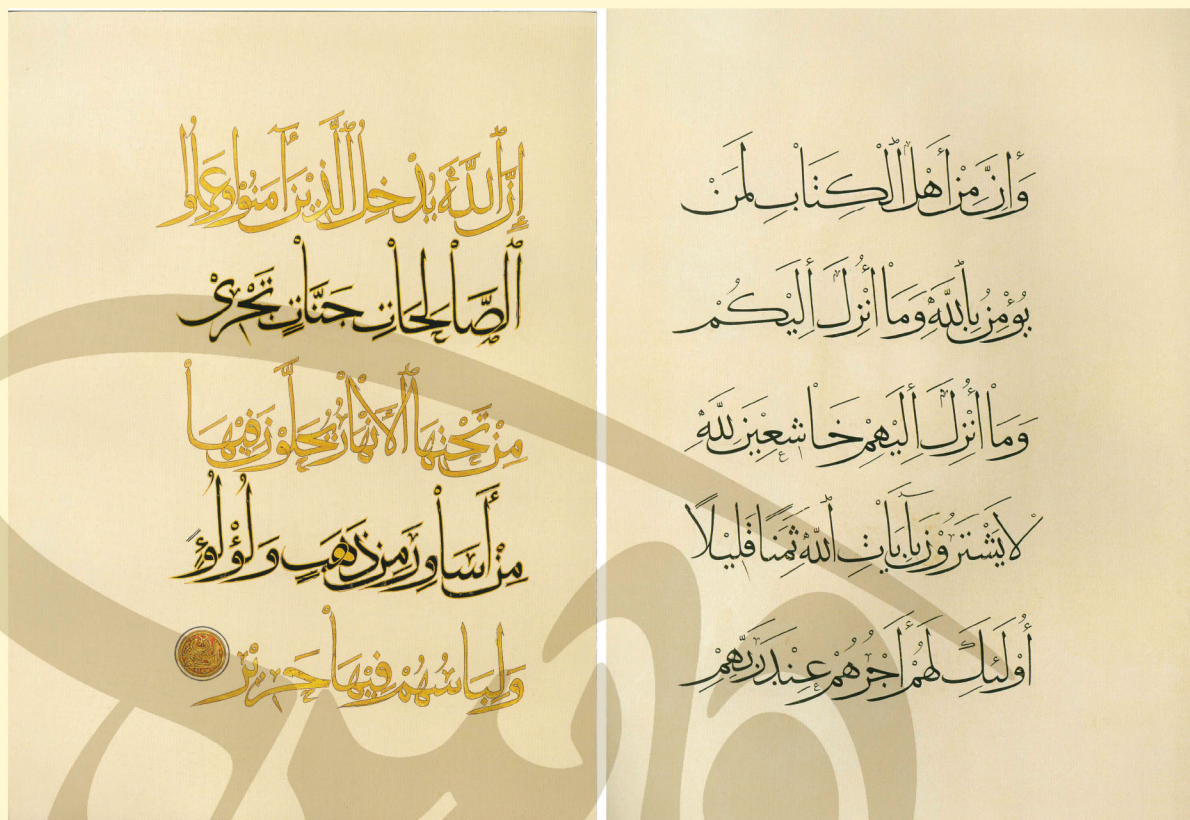 وَإِنَّ مِنْ أَهْلِ الْكِتَابِ لَمَنْ
يُؤْمِنُ بِاللَّهِ وَمَا أُنْزِلَ إِلَيْكُمْ
وَمَا أُنْزِلَ إِلَيْهِمْ خَاشِعِينَ لِلَّهِ
لَا يَشْتَرُونَ بِآيَاتِ اللَّهِ ثَمَنًا قَلِيلًا
أُولَئِكَ لَهُمْ أَجْرُهُمْ عِنْدَ رَبِّهِمْ
إِنَّ اللَّهَ يُدْخِلُ الَّذِينَ آمَنُوا وَعَمِلُوا
الصَّالِحَاتِ جَنَّاتٍ تَجْرِي
مِنْ تَحْتِهَا الْأَنْهَارُ يُحَلَّوْنَ فِيهَا
مِنْ أَسَاوِرَ مِنْ ذَهَبٍ وَلُؤْلُؤًا
وَلِبَاسُهُمْ فِيهَا حَرِيرٌ